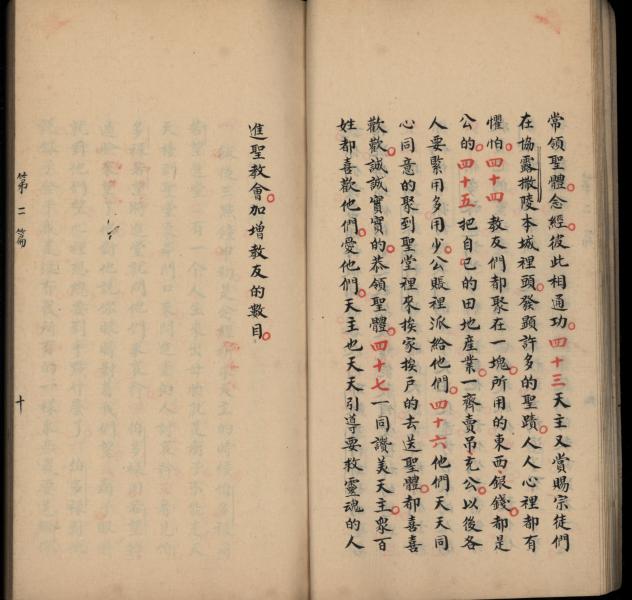 常領聖體念經彼此相通功四十三天主又賞賜宗徒們
在協露撒陵本城裡頭發顯許多的聖蹟人人心裡都有
懼怕四十四教友們都聚在一塊所用的東西銀錢都是
公的四十五把自己的田地産業一齊賣吊充公以後各
人要緊用多用少公賬裡派給他們四十六他們天天同
心同意的聚到聖堂裡來挨家挨戶的去送聖體都喜喜
歡歡誠誠實實的恭領聖體四十七一同讚美天主衆百
姓都喜歡他們愛他們天主也天天引導要救靈魂的人
進聖教會加增教友的數目
第二篇
十